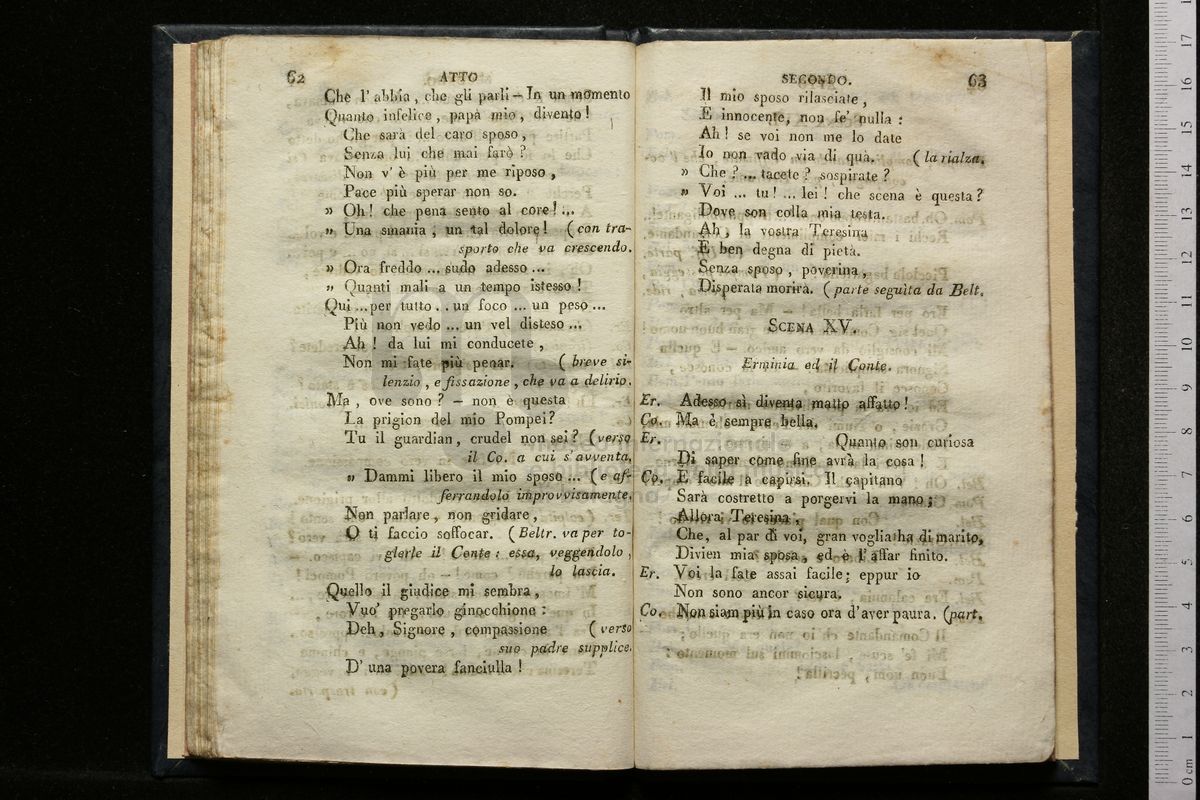 62 ATTO
Che l'abbia, che gli parli — In un momento
Quanto infelice, papà mio, divento!
Che sarà del caro sposo,
Senza lui che mai farò?
Non v'è più per me riposo,
Pace più sperar non so.
» Oh! che pena sento al core!...
» Una smania, un tal dolore! (con tra-
sporto che va crescendo.
» Ora freddo ... sudo adesso ...
» Quanti mali a un tempo istesso!
Qui ... per tutto .. un foco ... un peso ...
Più non vedo ... un vel disteso ...
Ah! da lui mi conducete,
Non mi fate più penar. (breve si-
lenzio, e fissazione, che va a delirio.
Ma, ove sono? — non è questa
La prigion del mio Pompei?
Tu il guardian, crudel non sei? (verso
il Co. a cui s'avventa,
» Dammi libero il mio sposo ... (e af-
ferrandolo improvvisamente.
Non parlare, non gridare,
O ti faccio soffocar. (Beltr. va per to-
glerle il Conte: essa, veggendolo,
lo lascia.
Quello il giudice mi sembra,
Vuo' pregarlo ginocchione:
Deh, Signore, compassione (verso
suo padre supplice.
D'una povera fanciulla!
SECONDO. 63
Il mio sposo rilasciate,
E innocente, non fe' nulla:
Ah! se voi non me lo date
Io non vado via di quà. (la rialza.
» Che? ... tacete? sospirate?
» Voi ... tu! ... lei! che scena è questa?
Dove son colla mia testa.
Ah, la vostra Teresina
E ben degna di pietà.
Senza sposo, poverina,
Disperata morirà. (parte seguita da Belt.
SCENA XV.
Erminia ed il Conte.
Er. Adesso sì diventa matto affatto!
Co. Ma è sempre bella.
Er. Quanto son curiosa
Di saper come fine avrà la cosa!
Co. E facile a capirsi. Il capitano
Sarà costretto a porgervi la mano;
Allora Teresina,
Che, al par di voi, gran voglia ha di marito,
Divien mia sposa, ed è l'affar finito.
Er. Voi la fate assai facile; eppur io
Non sono ancor sicura.
Co. Non siam più in caso ora d'aver paura. (part.